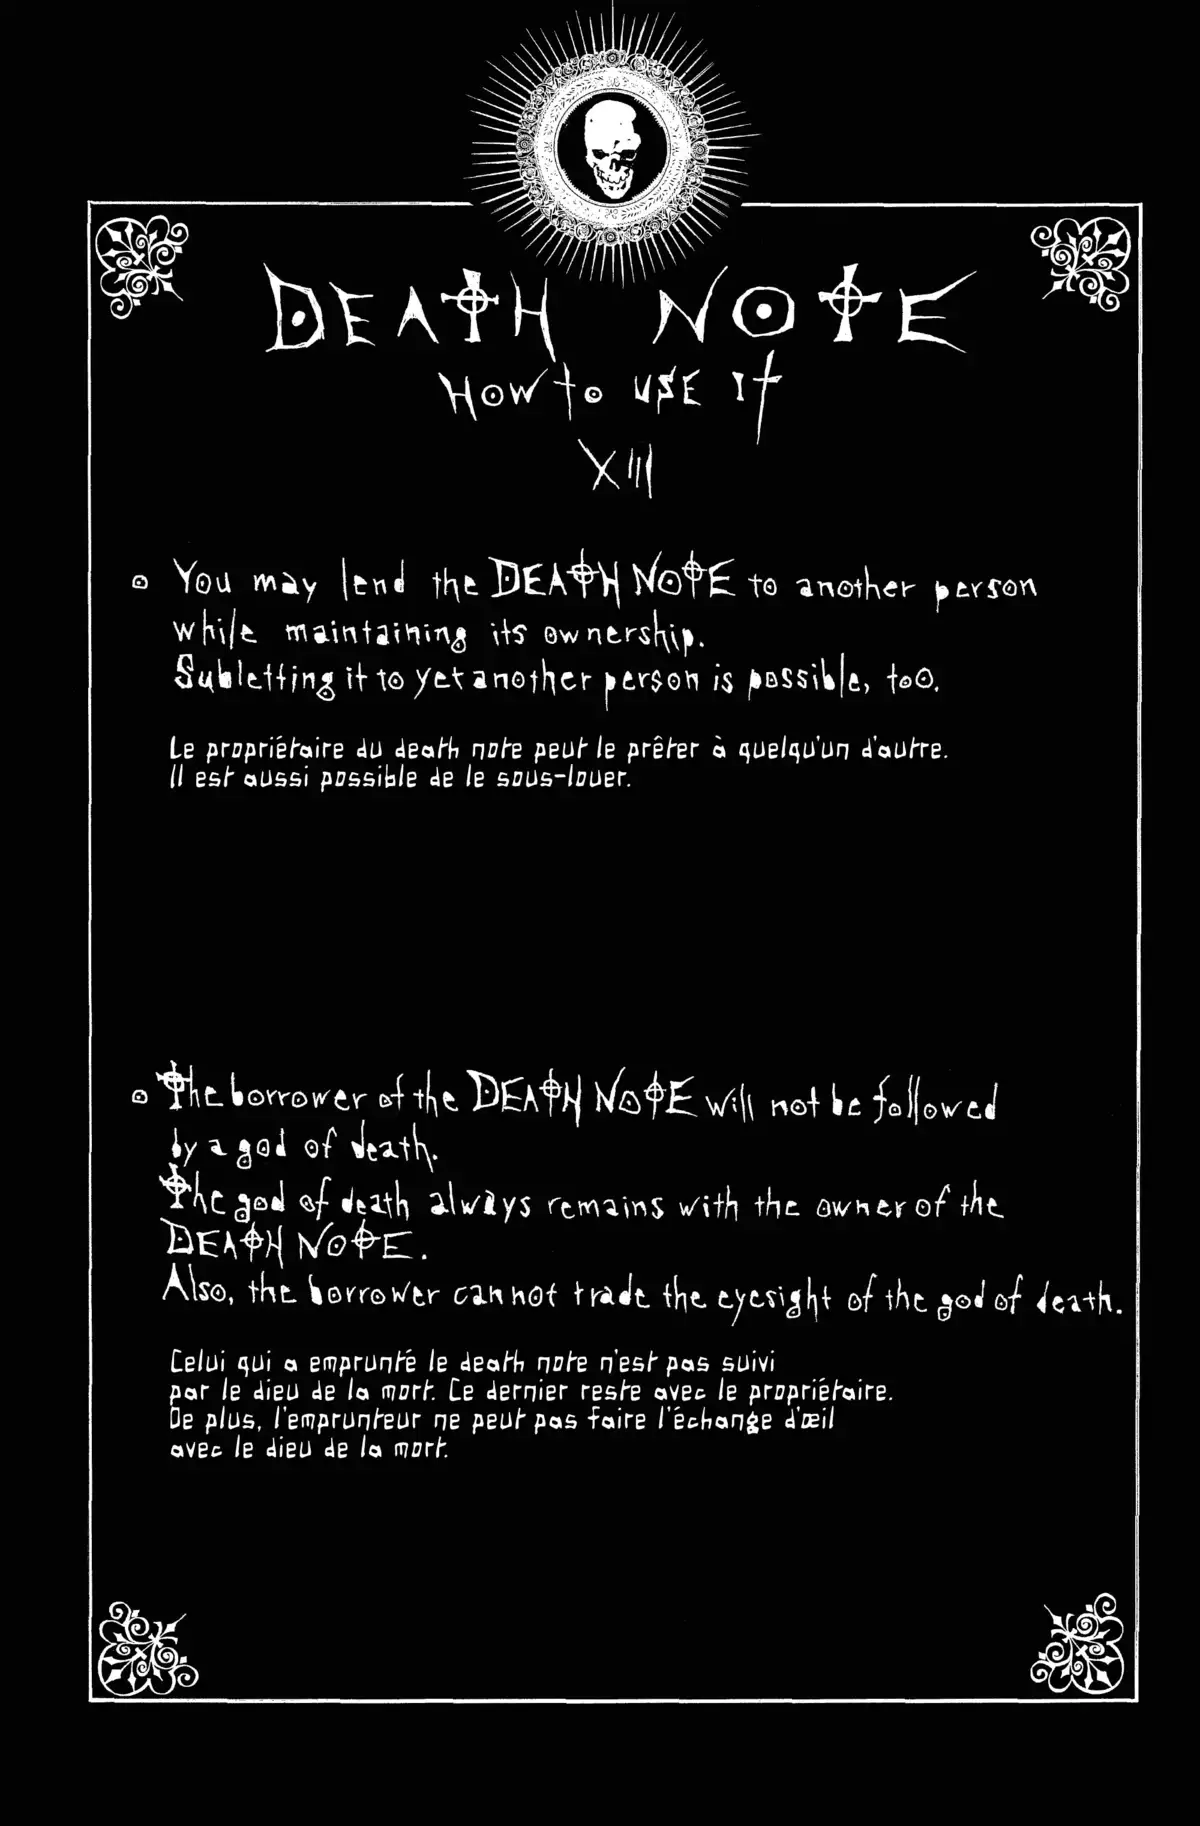 DEATH NOTE
HOW to USE It
XIII
You may lend the DEATH NOTE to another person
while maintaining its ownership.
Subletting it to yet another person is possible, too.
Le propriétaire du death note peut le prêter à quelqu'un d'autre.
Il est aussi possible de le sous-louer.
The borrower of the DEATH NOTE will not be followed
by a god of death.
The god of death always remains with the owner of the
DEATH NOTE.
Also, the borrower cannot trade the eyesight of the god of death.
Celui qui a emprunté le death note n'est pas suivi
par le dieu de la mort. Ce dernier reste avec le propriétaire.
De plus, l'emprunteur ne peut pas faire l'échange d'œil
avec le dieu de la mort.